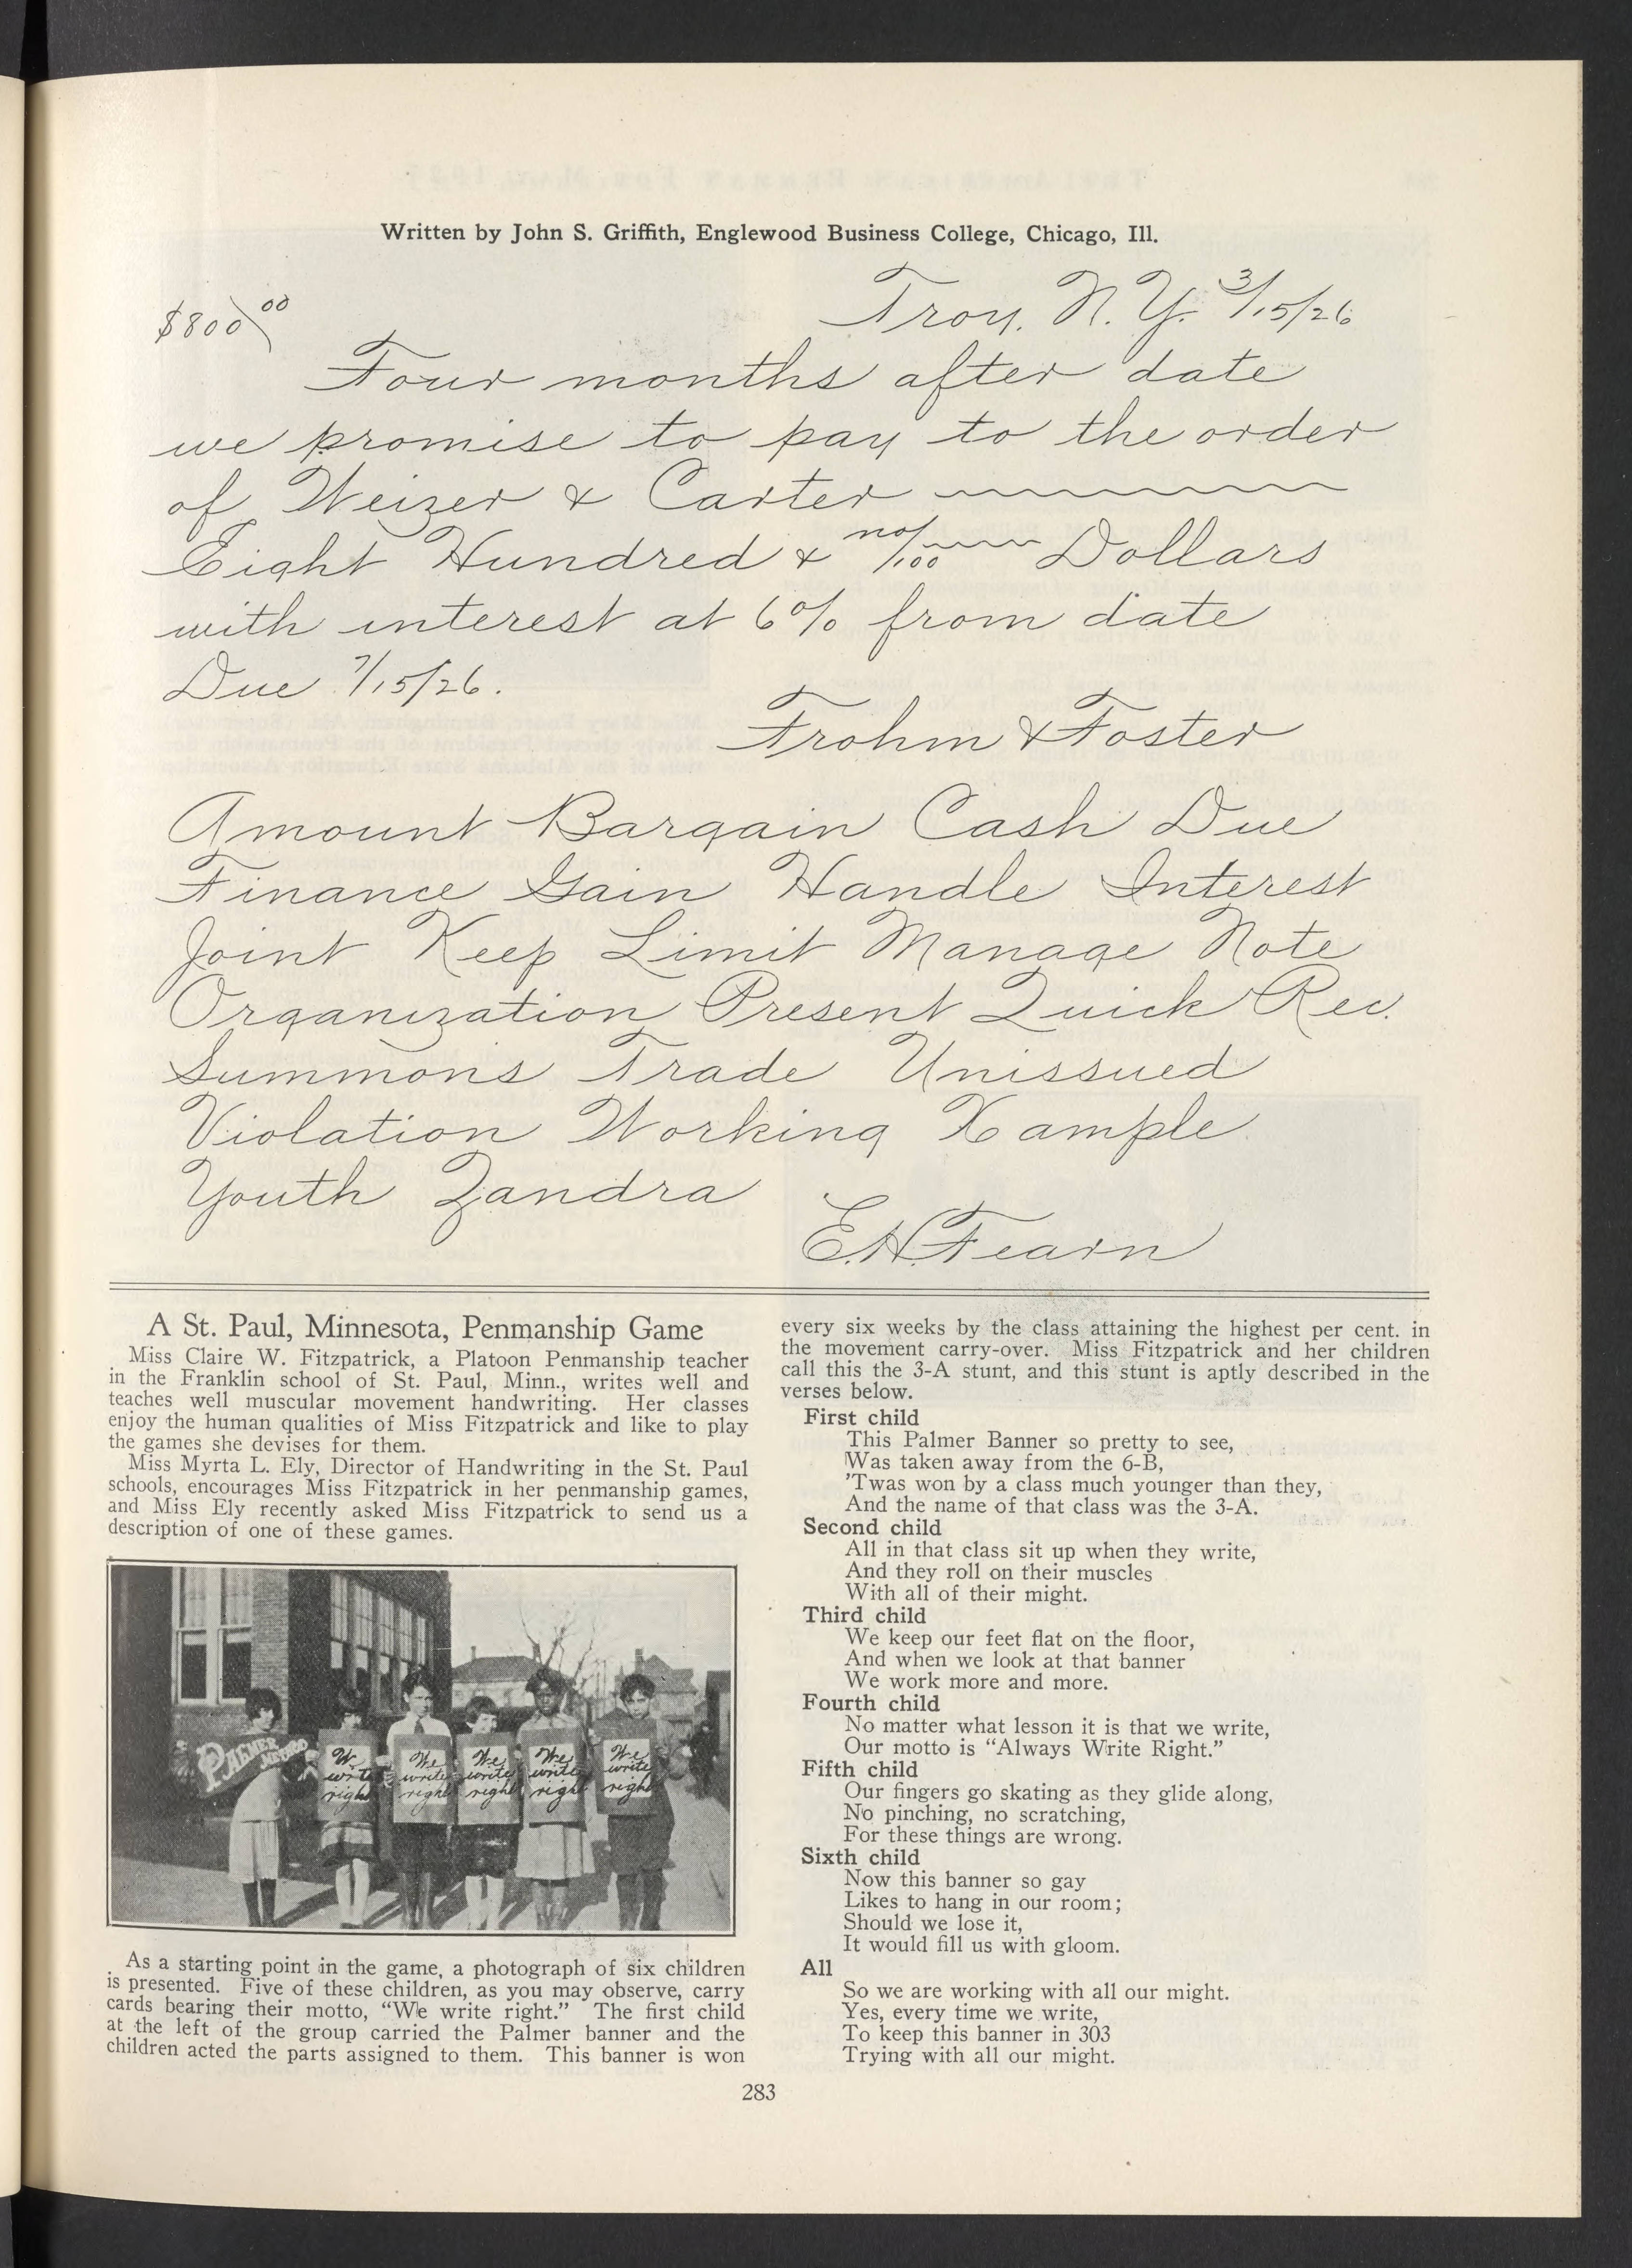 Written by John S. Griffith, Englewood Business College, Chicago, Ill.
$800 00
Troy, N. Y. 3/15/26
Four months after date
we promise to pay to the order
of Weizer & Carter
Eight Hundred & no/100 Dollars
with interest at 6% from date
Due 7/15/26.
Frohm & Foster
Amount Bargain Cash Due
Finance Gain Handle Interest
Joint Keep Limit Manage Note
Organization Present Quick Rec.
Summons Trade Unissued
Violation Working Xample
Youth Zandra
E.H. Fearn
A St. Paul, Minnesota, Penmanship Game
Miss Claire W. Fitzpatrick, a Platoon Penmanship teacher
in the Franklin school of St. Paul, Minn., writes well and
teaches well muscular movement handwriting. Her classes
enjoy the human qualities of Miss Fitzpatrick and like to play
the games she devises for them.
Miss Myrta L. Ely, Director of Handwriting in the St. Paul
schools, encourages Miss Fitzpatrick in her penmanship games,
and Miss Ely recently asked Miss Fitzpatrick to send us a
description of one of these games.
PALMER
We write right
We write right
We write right
We write right
We write right
As a starting point in the game, a photograph of six children
is presented. Five of these children, as you may observe, carry
cards bearing their motto, “We write right.” The first child
at the left of the group carried the Palmer banner and the
children acted the parts assigned to them. This banner is won
every six weeks by the class attaining the highest per cent. in
the movement carry-over. Miss Fitzpatrick and her children
call this the 3-A stunt, and this stunt is aptly described in the
verses below.
First child
This Palmer Banner so pretty to see,
Was taken away from the 6-B,
’Twas won by a class much younger than they,
And the name of that class was the 3-A.
Second child
All in that class sit up when they write,
And they roll on their muscles
With all of their might.
Third child
We keep our feet flat on the floor,
And when we look at that banner
We work more and more.
Fourth child
No matter what lesson it is that we write,
Our motto is “Always Write Right.”
Fifth child
Our fingers go skating as they glide along,
No pinching, no scratching,
For these things are wrong.
Sixth child
Now this banner so gay
Likes to hang in our room;
Should we lose it,
It would fill us with gloom.
All
So we are working with all our might.
Yes, every time we write,
To keep this banner in 303
Trying with all our might.
283